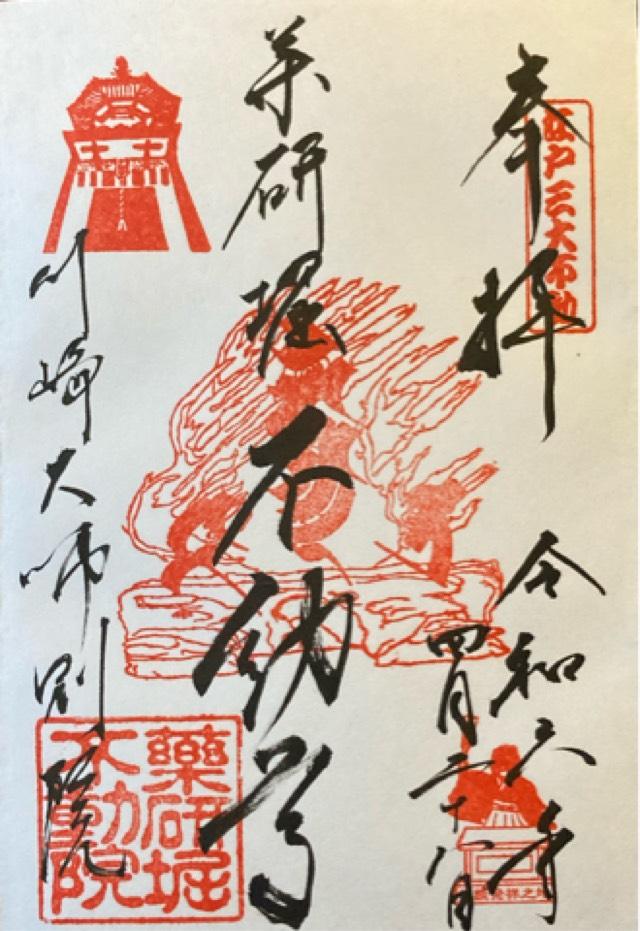 奉拝
江戸三大不動
令和六年
四月二十八日
薬研堀不動尊
川崎大師別院
薬研堀
不動院